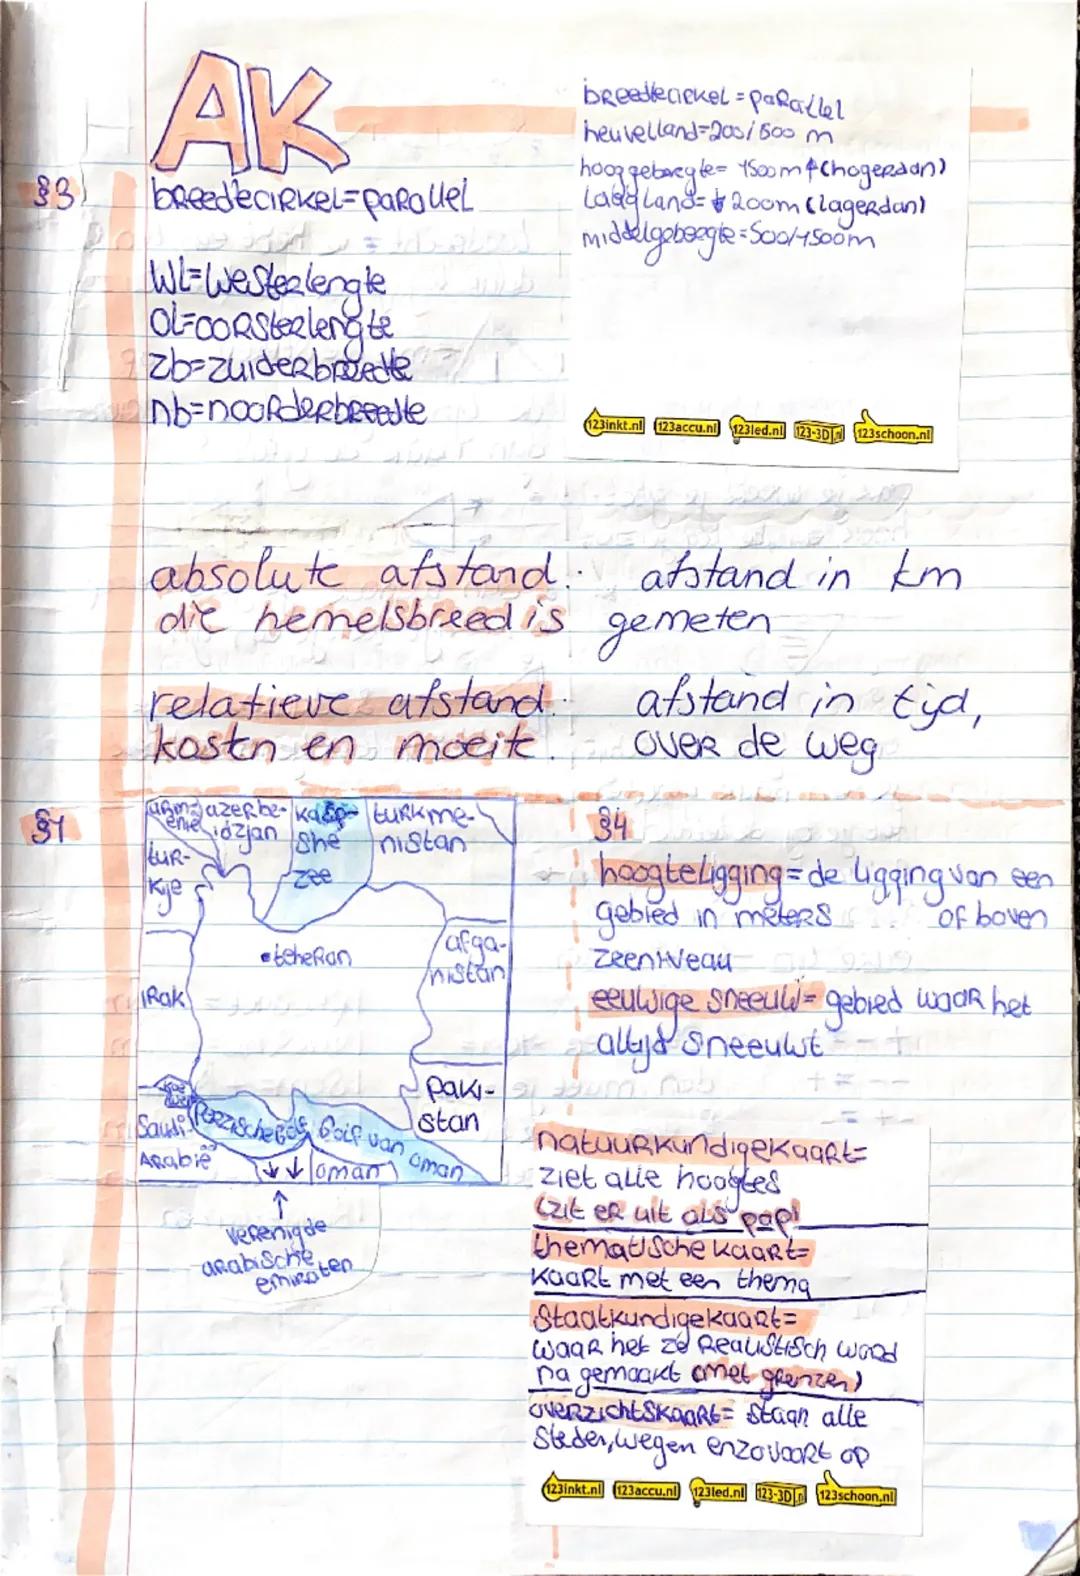 AK
§3
breedtecirkel=parallel
WL=westerlengte
OL=oosterlengte
zb=zuiderbreedte
nb=noorderbreedte
breedtecirkel=parallel
heuvelland=200/500 m
hooggebergte= 1500m↑(hogerdan)
Laagland= ↓200m (lagerdan)
middelgebergte=500/1500m
123inkt.nl 123accu.nl 123led.nl 123-3D.nl 123schoon.nl
absolute afstand: afstand in km
die hemelsbreed is gemeten
relatieve afstand: afstand in tijd,
kosten en moeite. over de weg
§1
armenie
azerbe-
idzjan
kaspi-
she
zee
turkme-
nistan
tur-
kije
•teheran
afga-
nistan
IRak
Paki-
stan
koe
weit
Saudi
Arabië
Perzische Golf
Golf van
oman
oman
verenigde
arabische
emiraten
§4
hoogteligging= de ligging van een
gebied in meters of boven
zeeniveau
eeuwige sneeuw= gebied waar het
altijd sneeuwt
natuurkundigekaart=
ziet alle hoogtes
(zit er uit als papi
thematische kaart=
kaart met een thema
Staatkundigekaart=
waar het zo realistisch word
na gemaakt (met grenzen)
overzichtskaart= staan alle
steden, wegen enzovoort op
123inkt.nl 123accu.nl 123led.nl 123-3D.nl 123schoon.nl